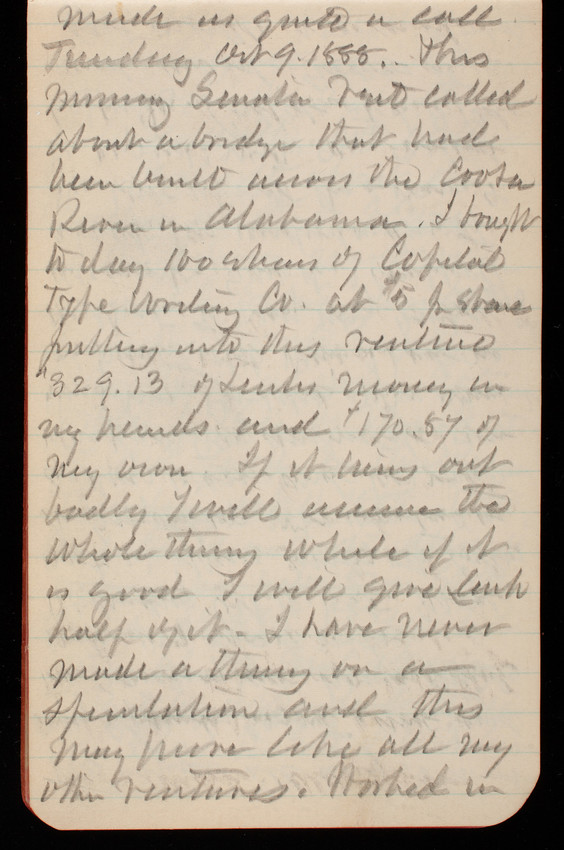 made us quite a call
Tuesday Oct 9. 1888. This
morning Senator called
about a bridge that had
been built across the Coosa
River in Alabama. I bought
to day 100 shares of Capital
Type Writing Co. at $5 pr share
putting into this venture
$329.13 of money in
my hands and $170.87 of
my own. If it turns out
badly I will assume the
whole thing while if it
is good I will give
half of it. I have never
made a thing on a
speculation and this
may prove like all my
other ventures. Worked in